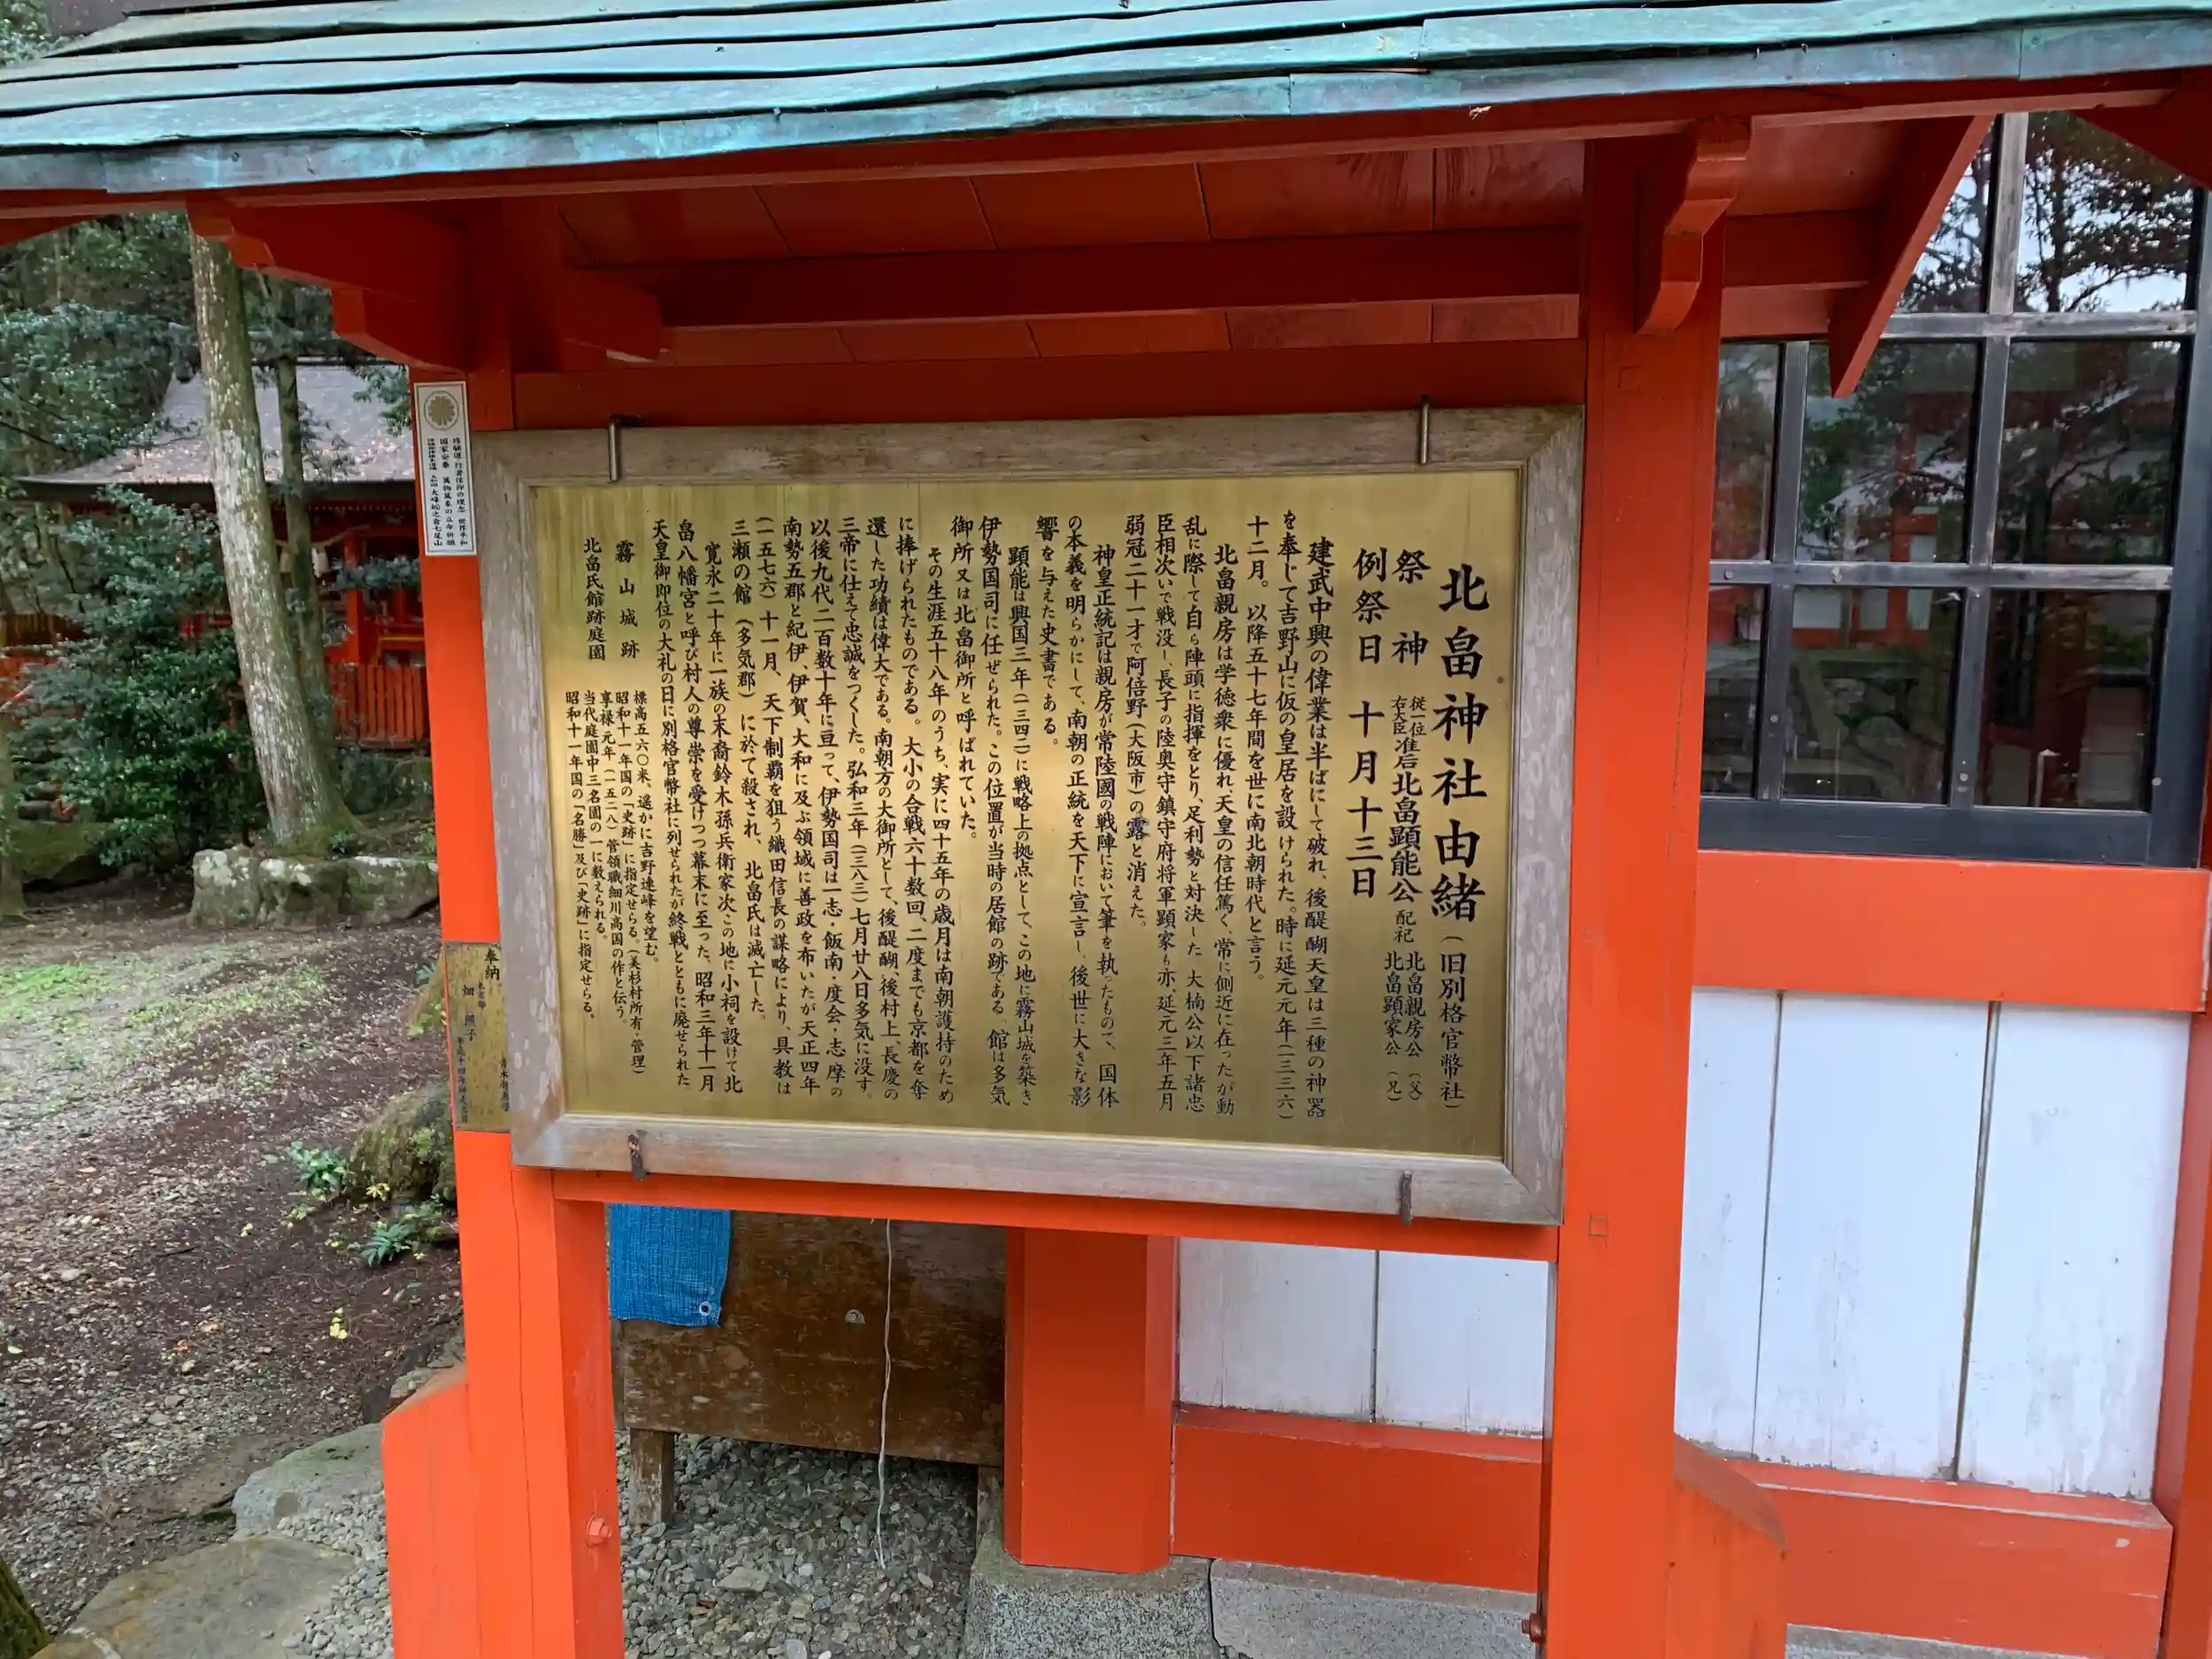 北畠神社由緒（旧別格官幣社）
祭神 従一位右大臣准后北畠顕能公 配祀 北畠親房公（父） 北畠顕家公（兄）
例祭日 十月十三日
建武中興の偉業は半ばにして破れ、後醍醐天皇は三種の神器
を奉じて吉野山に仮の皇居を設けられた。時に延元元年（一三三六）
十二月。以降五十七年間を世に南北朝時代と言う。
北畠親房は学徳衆に優れ天皇の信任篤く、常に側近に在ったが動
乱に際して自ら陣頭に指揮をとり、足利勢と対決した 大楠公以下諸忠
臣相次いで戦没し、長子の陸奥守鎮守府将軍顕家も亦、延元三年五月
弱冠二十一才で阿倍野（大阪市）の露と消えた。
神皇正統記は親房が常陸國の戦陣において筆を執ったもので、国体
の本義を明らかにして、南朝の正統を天下に宣言し、後世に大きな影
響を与えた史書である。
顕能は興国三年（一三四二）に戦略上の拠点として、この地に霧山城を築き
伊勢国司に任ぜられた。この位置が当時の居館の跡である 館は多気
御所又は北畠御所と呼ばれていた。
その生涯五十八年のうち、実に四十五年の歳月は南朝護持のため
に捧げられたものである。大小の合戦六十数回、二度までも京都を奪
還した功績は偉大である。南朝方の大御所として、後醍醐、後村上、長慶の
三帝に仕えて忠誠をつくした。弘和三年（一三八三）七月廿八日多気に没す。
以後九代二百数十年に亘って、伊勢国司は一志・飯南・度会・志摩の
南勢五郡と紀伊、伊賀、大和に及ぶ領域に善政を布いたが天正四年
（一五七六）十一月、天下制覇を狙う織田信長の謀略により、具教は
三瀬の館（多気郡）に於て殺され、北畠氏は滅亡した。
寛永二十年に一族の末裔鈴木孫兵衛家次この地に小祠を設けて北
畠八幡宮と呼び村人の尊崇を受けつつ幕末に至った、昭和三年十一月
天皇御即位の大礼の日に別格官幣社に列せられたが終戦とともに廃せられた
霧山城跡 標高五六〇米、遥かに吉野連峰を望む。
昭和十一年国の「史跡」に指定せらる。（美杉村所有・管理）
北畠氏館跡庭園 享禄元年（一五二八）管領職細川高国の作と伝う。
当代庭園中三名園の一に数えられる。
昭和十一年国の「名勝」及び「史跡」に指定せらる、
奉納
畑 照子
国家安泰
世界平和